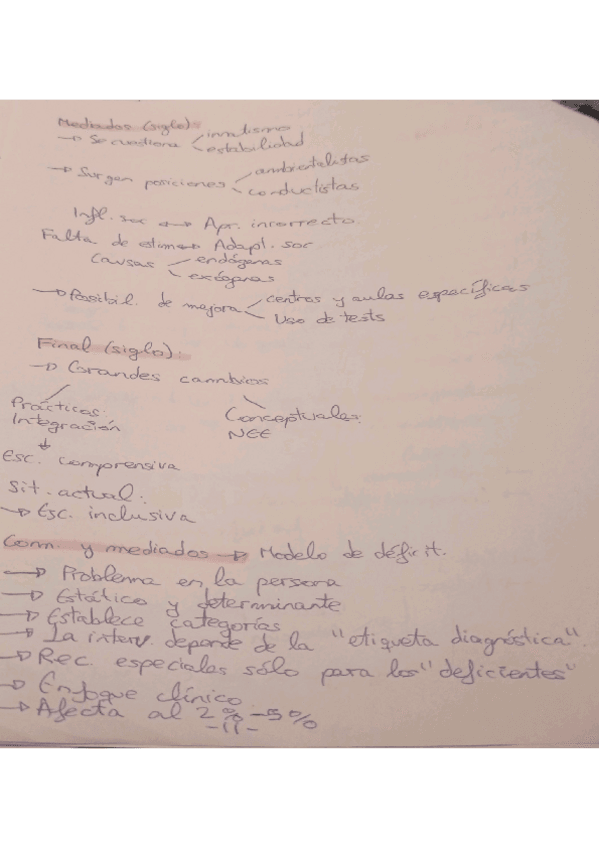 Mediados (siglo):
→ Se cuestiona < innatismo
estabilidad
→ Surgen posiciones < ambientalistas
conductistas
Infl. soc → Apr. incorrecto.
Falta de estim → Adapl. soc
Causas < endógenas
exógenas
→ Posibil. de mejora < centros y aulas específicas
Uso de tests
Final (siglo):
→ Grandes cambios
Prácticas: Conceptuales:
Integración NEE
Esc. comprensiva
Sit. actual:
→ Esc. inclusiva
Com. y mediados → Modelo de déficit.
→ Problema en la persona
→ Estático y determinante
→ Establece categorías
→ La interv. depende de la "etiqueta diagnóstica".
→ Rec. especiales sólo para los "deficientes"
→ Enfoque clínico
→ Afecta al 2% - 5%
-11-